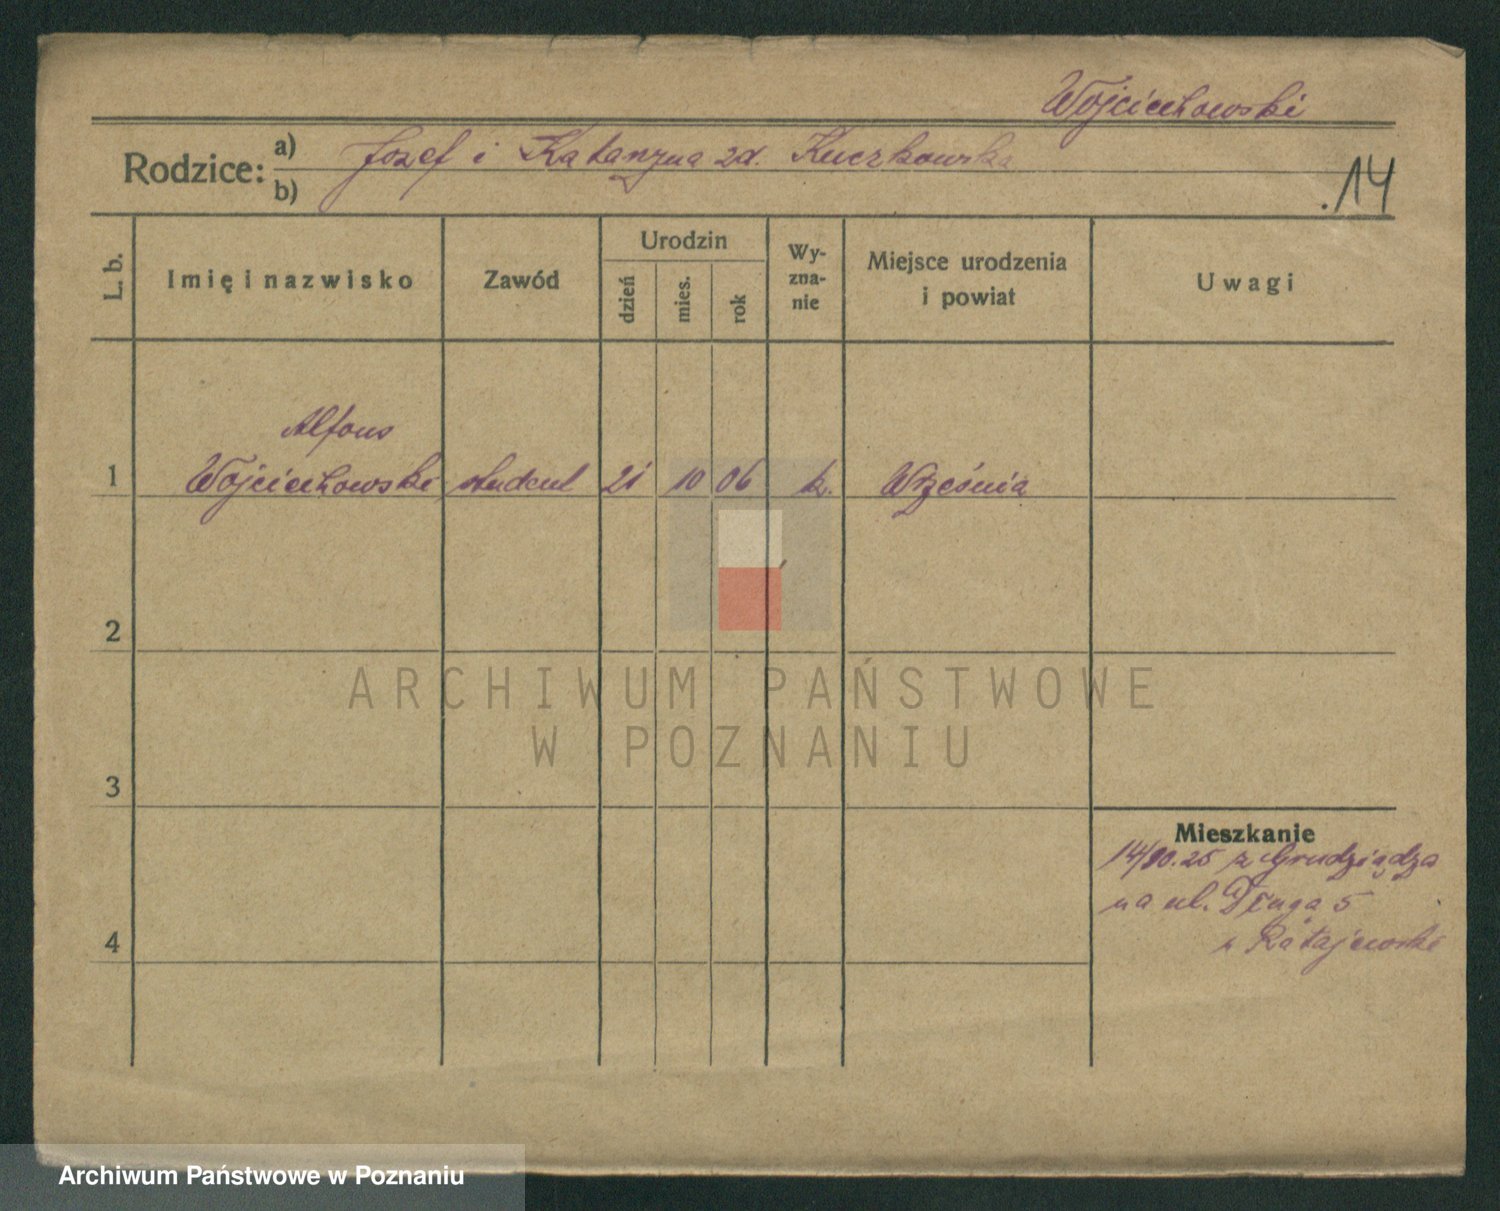 Wojciechowski
Rodzice: a) Józef i Katarzyna zd. Kuczkowska
b)
.14
L. b. Imię i nazwisko Zawód Urodzin dzień mies. rok Wy-zna-nie Miejsce urodzenia i powiat Uwagi
Alfons
1 Wojciechowski student 21 10 06 k. Września
2
ARCHIWUM PAŃSTWOWE
W POZNANIU
3
Mieszkanie
14/10.25 z Grudziądza
na ul. Długa 5
4
u Ratajewski
Archiwum Państwowe w Poznaniu